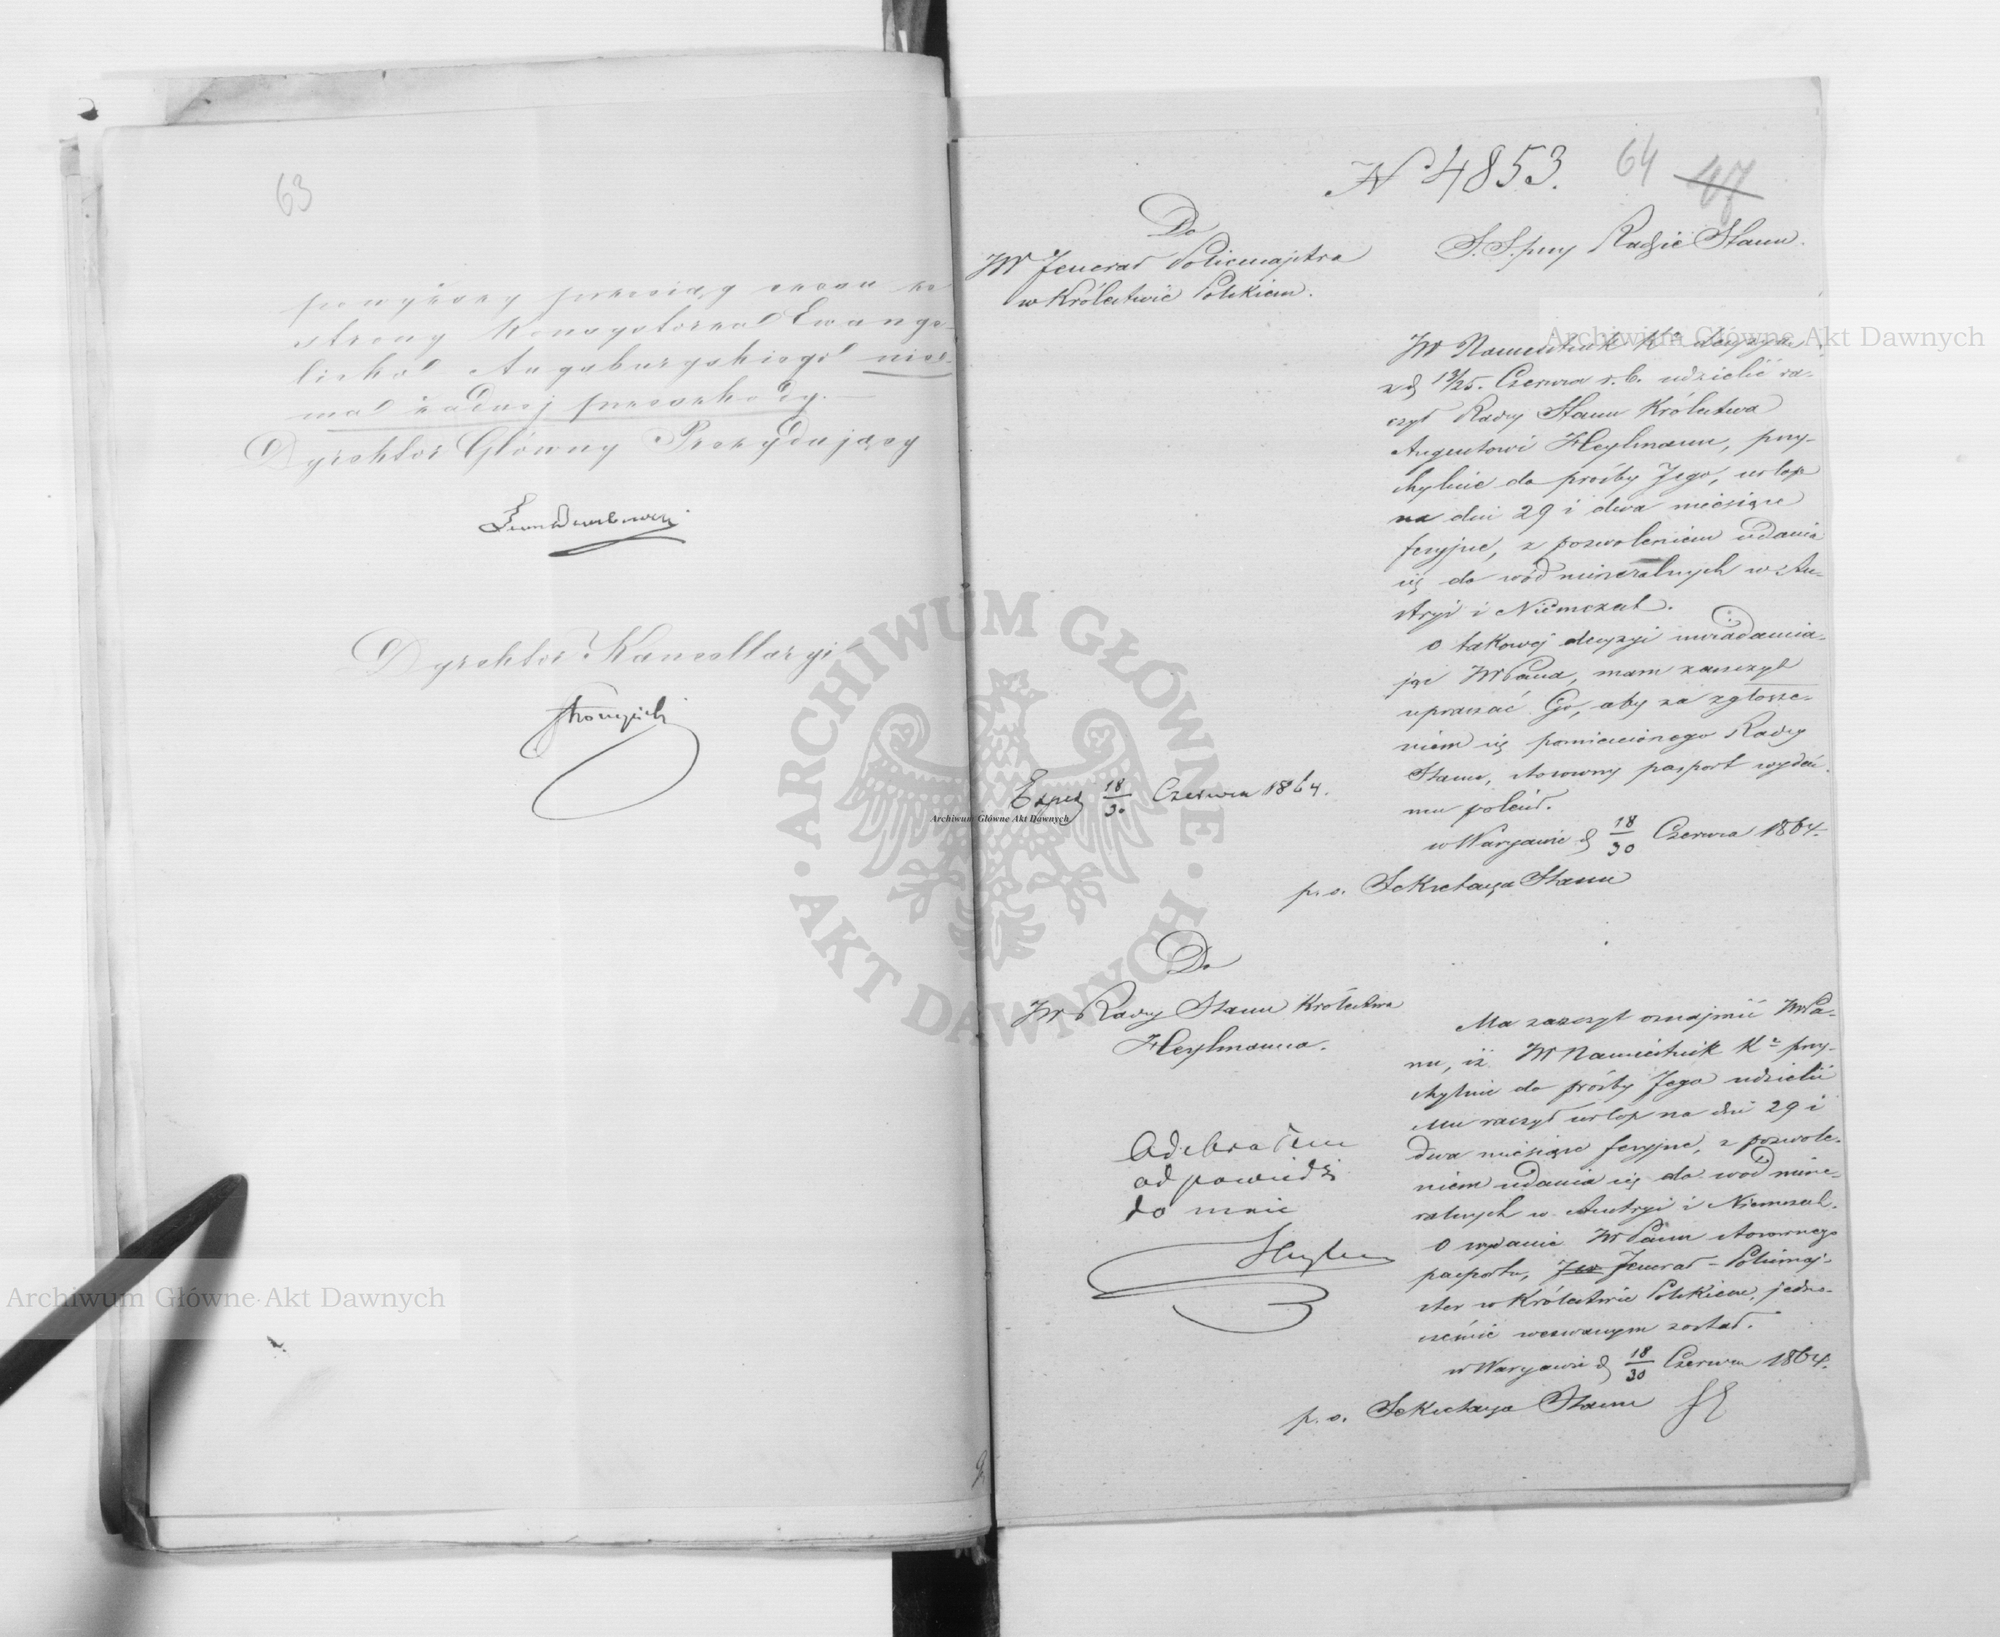 63
powyższy przeciąg czasu ze
strony Konsystorza Ewange-
licko Augsburgskiego nie
ma żadnej przeszkody.
Dyrektor Główny Prezydujący
Dyrektor Kancellaryi
N 4853.
64
47
S. S. przy Radzie Stanu.
Do
JW Jenerał Policmajstra
w Królestwie Polskiem.
JW Namiestnik Kr. decyzyą
z d 13/25. Czerwca r. b. udzielić ra-
czył Radcy Stanu Królestwa
Augustowi Heylmann, przy-
chylnie do prośby Jego, urlop
na dni 29 i dwa miesiące
feryjne, z pozwoleniem udania
się do wód mineralnych w Au-
stryi i Niemczech.
O takowej decyzyi uwiadamia-
jąc JWPana, mam zaszczyt
upraszać Go, aby za zgłosze-
niem się pomienionego Radcy
Stanu, stosowny pasport wydać
mu polecił.
w Warszawie d 18/30 Czerwca 1864.
Exped 18/30 Czerwca 1864.
p. o. Sekretarza Stanu
Do
JW Radcy Stanu Królestwa
Heylmanna.
Ma zaszczyt oznajmić JWPa-
nu, iż JW Namiestnik Kr. przy-
chylnie do prośby Jego udzielić
Mu raczył urlop na dni 29 i
dwa miesiące feryjne, z pozwole-
niem udania się do wód mine-
ralnych w Austryi i Niemczech.
O wydanie JWPanu stosownego
pasportu, JW Jenerał-Policmaj-
ster w Królestwie Polskiem, jedno-
cześnie wezwanym został.
w Warszawie d 18/30 Czerwca 1864.
p. o. Sekretarza Stanu
Odebrałem
odpowiedź
do mnie
Heylman
Archiwum Główne Akt Dawnych
Archiwum Główne Akt Dawnych
Archiwum Główne Akt Dawnych
ARCHIWUM GŁÓWNE · AKT DAWNYCH ·